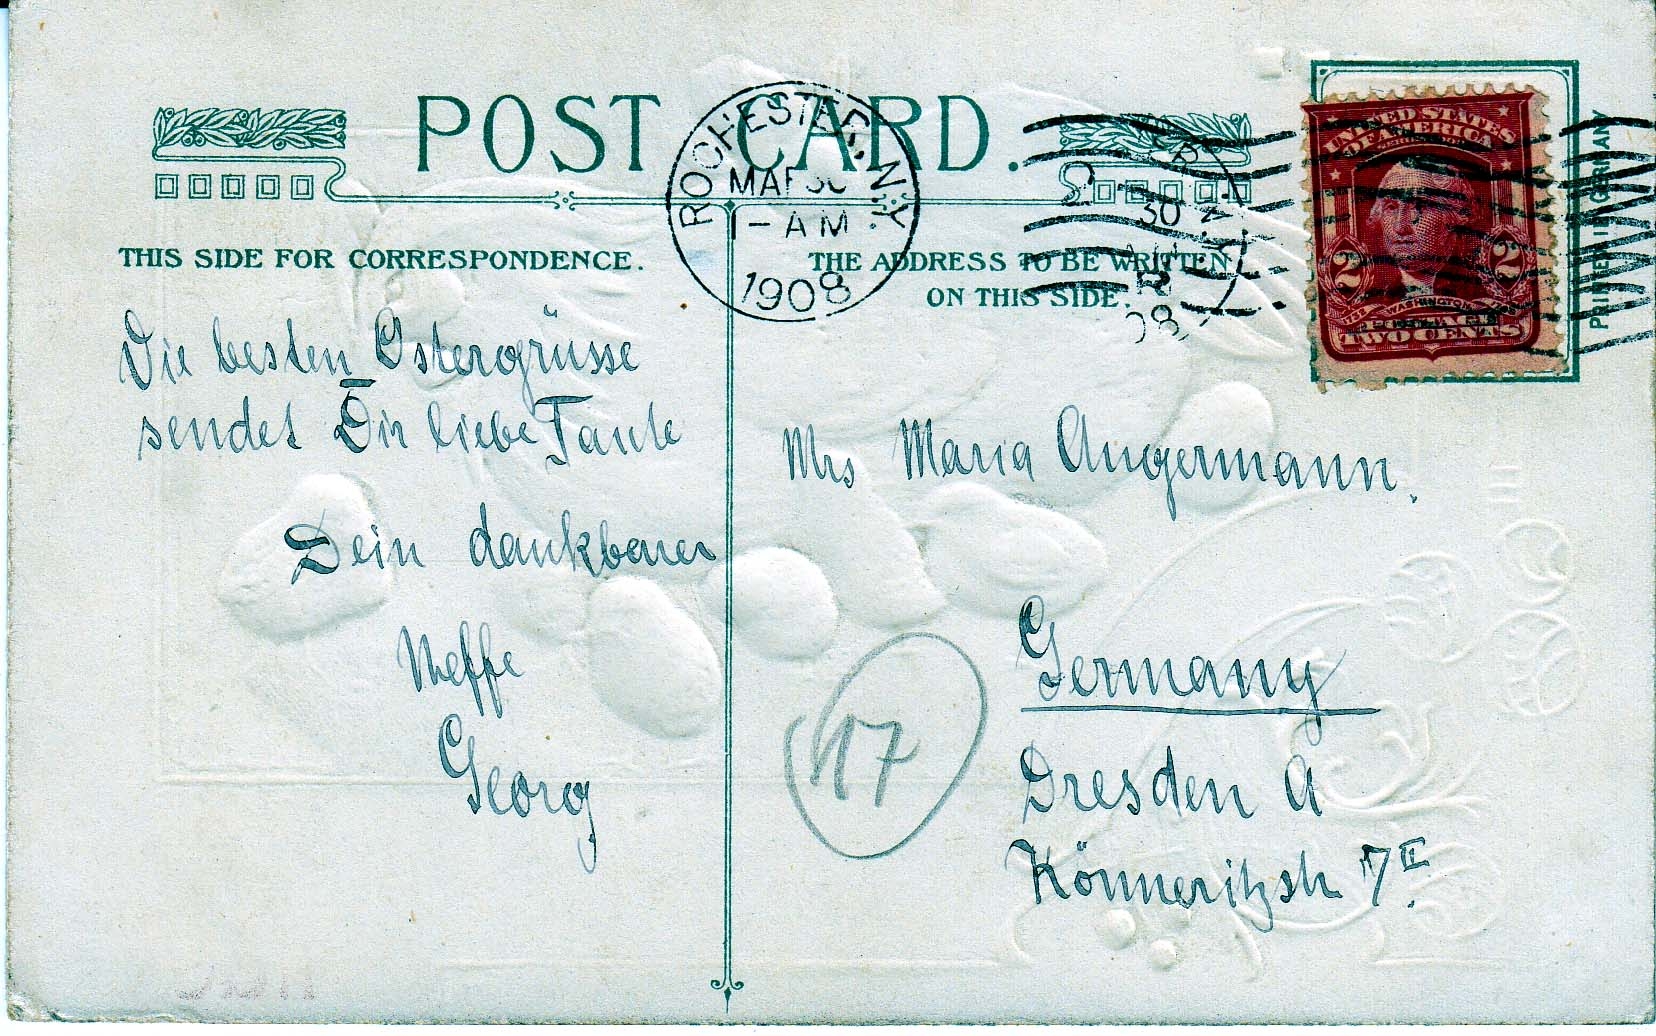 POST CARD.
ROCHESTER, N.Y.
1-AM
1908
30
UNITED STATES
OF AMERICA
2 2
1732 WASHINGTON
POSTAGE
TWO CENTS
PRINTED IN GERMANY
THIS SIDE FOR CORRESPONDENCE.
THE ADDRESS TO BE WRITTEN
ON THIS SIDE.
Die besten Ostergrüsse
sendet Dir liebe Tante
Dein dankbarer
Neffe
Georg
Mrs Maria Angermann.
Germany
17
Dresden A
Könneritzstr 7 II.